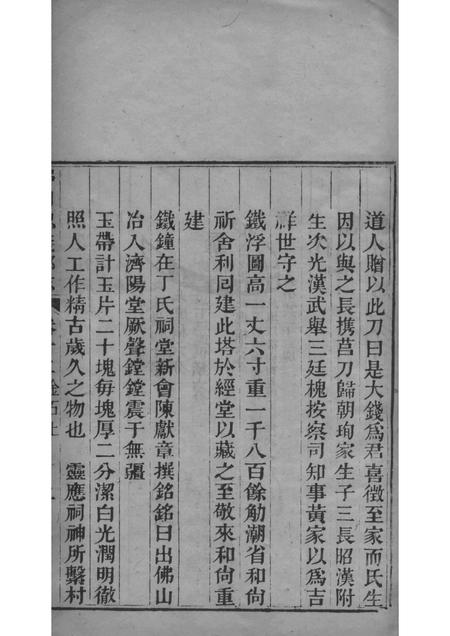 道人贈以此刀曰是大錢爲君喜徵至家而氏生
因以與之長攜莒刀歸朝珣家生子三長昭漢附
生次光漢武舉三廷槐按察司知事黃家以爲吉
祥世守之
鐵浮圖高一丈六寸重一千八百餘觔潮省和尙
祈舍利囘建此塔於經堂以藏之至敬來和尙重
建
鐵鐘在丁氏祠堂新會陳獻章撰銘銘曰出佛山
冶入濟陽堂厥聲鏜鏜震于無疆
玉帶計玉片二十塊每塊厚二分潔白光潤明徹
照人工作精古歲久之物也 靈應祠神所繫村